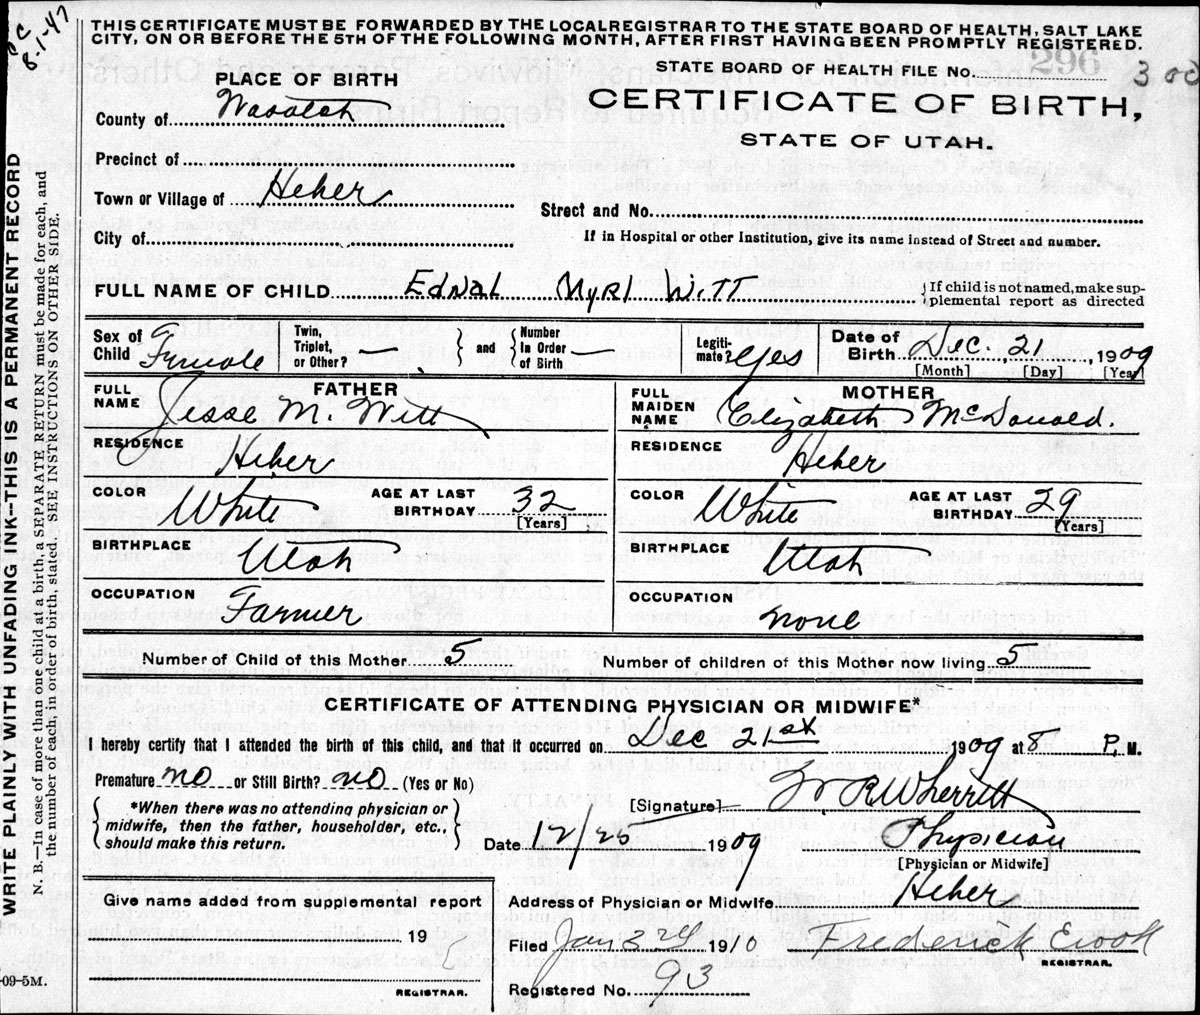 8-1-47
THIS CERTIFICATE MUST BE FORWARDED BY THE LOCAL REGISTRAR TO THE STATE BOARD OF HEALTH, SALT LAKE
CITY, ON OR BEFORE THE 5TH OF THE FOLLOWING MONTH, AFTER FIRST HAVING BEEN PROMPTLY REGISTERED.
PLACE OF BIRTH
STATE BOARD OF HEALTH FILE No. 296 300
County of Wasatch
CERTIFICATE OF BIRTH,
STATE OF UTAH.
Precinct of
Town or Village of Heber
Street and No.
City of
If in Hospital or other Institution, give its name instead of Street and number.
FULL NAME OF CHILD Ednal Myrl Witt {If child is not named, make sup-
plemental report as directed
Sex of Child Female Twin, Triplet, or Other? } and { Number In Order of Birth — Legiti-mate? Yes Date of Birth Dec. 21, 1909
[Month] [Day] [Year]
FATHER
FULL NAME Jesse M. Witt
RESIDENCE Heber
COLOR White AGE AT LAST BIRTHDAY 32
[Years]
BIRTHPLACE Utah
OCCUPATION Farmer
MOTHER
FULL MAIDEN NAME Elizabeth McDonald.
RESIDENCE Heber
COLOR White AGE AT LAST BIRTHDAY 29
[Years]
BIRTHPLACE Utah
OCCUPATION none
Number of Child of this Mother 5 Number of children of this Mother now living 5
CERTIFICATE OF ATTENDING PHYSICIAN OR MIDWIFE*
I hereby certify that I attended the birth of this child, and that it occurred on Dec 21st 1909 at 8 P. M.
Premature no or Still Birth? no (Yes or No)
*When there was no attending physician or
midwife, then the father, householder, etc.,
should make this return.
[Signature] R Wherritt
Date 12/25 1909 Physician
[Physician or Midwife]
Give name added from supplemental report
19
REGISTRAR.
Address of Physician or Midwife Heber
Filed Jan 3rd 1910 Frederick Crook
REGISTRAR.
Registered No. 93
WRITE PLAINLY WITH UNFADING INK--THIS IS A PERMANENT RECORD
N. B.—In case of more than one child at a birth, a SEPARATE RETURN must be made for each, and
the number of each, in order of birth, stated. SEE INSTRUCTIONS ON OTHER SIDE.
-09-5M.